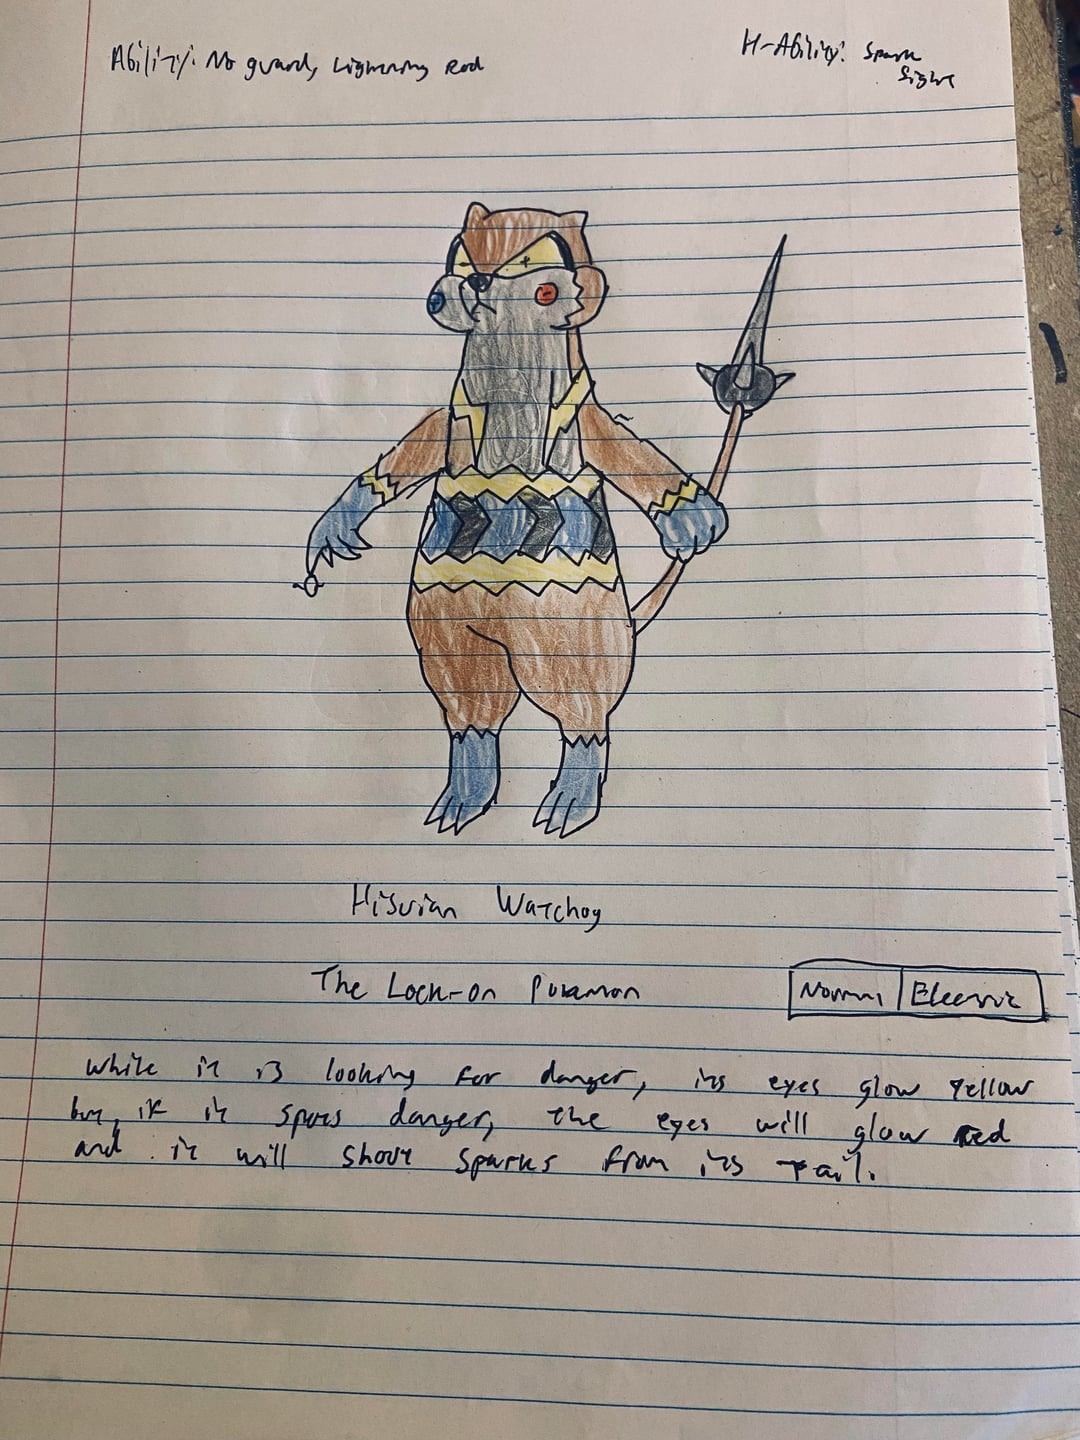 Ability: No guard, Lightning Rod
H-Ability: Spark
Sight
Hisuian Watchog
The Lock-on Pokemon
Normal Electric
While it is looking for danger, its eyes glow yellow
but, if it spots danger, the eyes will glow red
and it will shoot sparks from its tail.